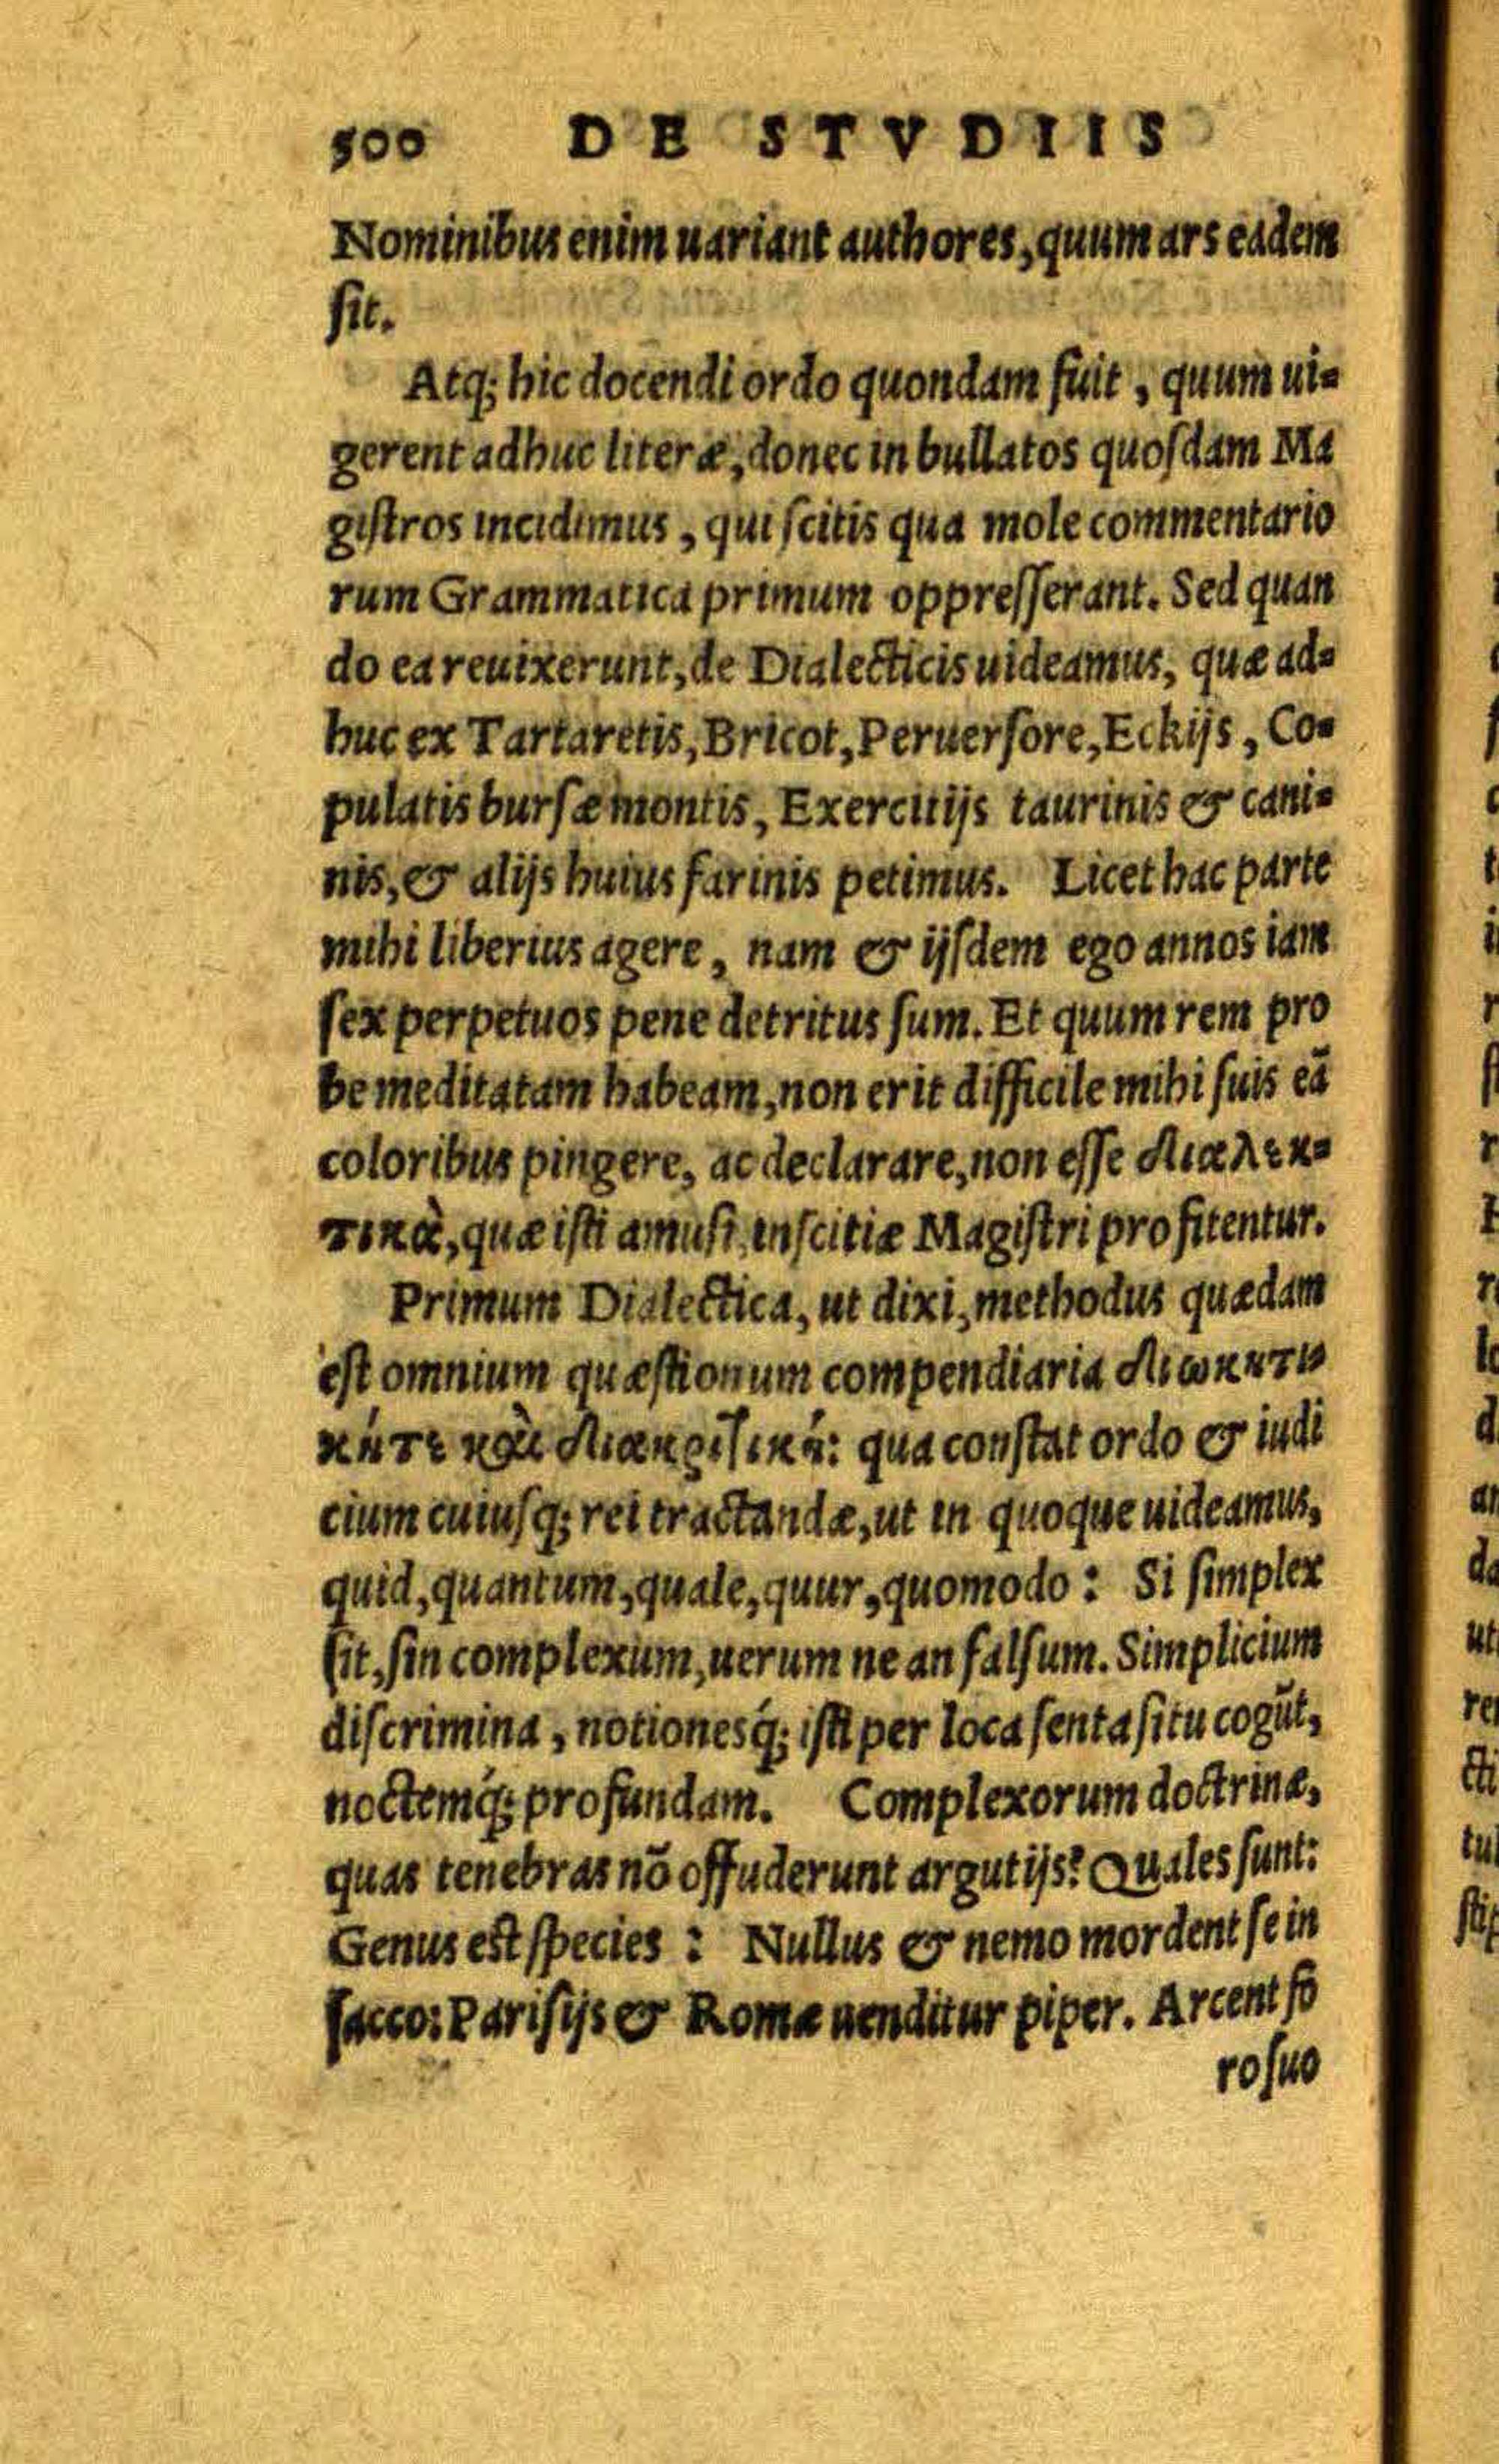 500 DE STVDIIS
Nominibus enim uariant authores, quum ars eadem
ſit.
Atq; hic docendi ordo quondam fuit, quum ui-
gerent adhuc literæ, donec in bullatos quoſdam Ma
giſtros incidimus, qui ſcitis qua mole commentario
rum Grammatica primum oppreſſerant. Sed quan
do ea reuixerunt, de Dialecticis uideamus, quæ ad-
huc ex Tartaretis, Bricot, Peruerſore, Eckijs, Co-
pulatis burſæ montis, Exercitijs taurinis & cani-
nis, & alijs huius farinis petimus. Licet hac parte
mihi liberius agere, nam & ijſdem ego annos iam
ſex perpetuos pene detritus ſum. Et quum rem pro
be meditatam habeam, non erit difficile mihi ſuis eã
coloribus pingere, ac declarare, non eſſe διαλεκ-
τικὰ, quæ iſti amuſi, inſcitiæ Magiſtri profitentur.
Primum Dialectica, ut dixi, methodus quædam
eſt omnium quæſtionum compendiaria διωκητι
κήτε καὶ διακριτικὴ: qua conſtat ordo & iudi
cium cuiuſq; rei tractandæ, ut in quoque uideamus,
quid, quantum, quale, quur, quomodo: Si ſimplex
ſit, ſin complexum, uerum ne an falſum. Simplicium
diſcrimina, notionesq́; iſti per loca ſenta ſitu cogũt,
noctemq́; profundam. Complexorum doctrinæ,
quas tenebras nõ offuderunt argutijs? Quales ſunt:
Genus eſt ſpecies: Nullus & nemo mordent ſe in
ſacco: Pariſijs & Romæ uenditur piper. Arcent fo
ro ſuo